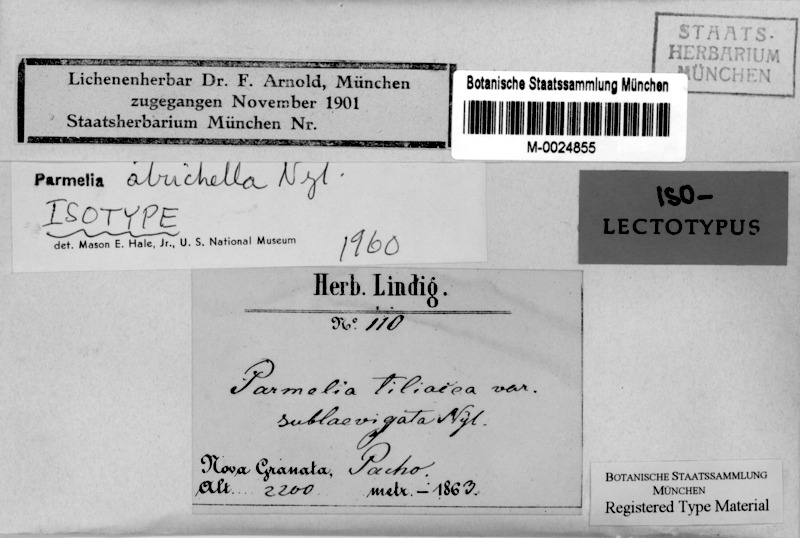 STAATS-
HERBARIUM
MÜNCHEN
Lichenenherbar Dr. F. Arnold, München
zugegangen November 1901
Staatsherbarium München Nr.
Botanische Staatssammlung München
M-0024855
Parmelia atrichella Nyl.
ISOTYPE
det. Mason E. Hale, Jr., U. S. National Museum
1960
ISO-
LECTOTYPUS
Herb. Lindig.
No. 110
Parmelia tiliacea var.
sublaevigata Nyl.
Nova Granata, Pacho.
Alt. 2200 metr. - 1863.
BOTANISCHE STAATSSAMMLUNG
MÜNCHEN
Registered Type Material